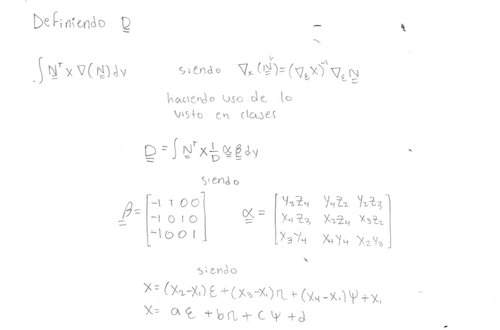 Definiendo D
∫ Nᵀ x ∇(N) dv siendo ∇ₓ(N) = (∇_ε X)⁻¹ ∇_ε N
haciendo uso de lo
visto en clases
D = ∫ Nᵀ x 1/D α β dv
siendo
β = [-1 1 0 0
-1 0 1 0
-1 0 0 1]
α = [y₃z₄ y₄z₂ y₂z₃
x₄z₃ x₂z₄ x₃z₂
x₃y₄ x₄y₄ x₂y₃]
siendo
x = (x₂-x₁)ε + (x₃-x₁)η + (x₄-x₁)ψ + x₁
x = aε + bη + cψ + d